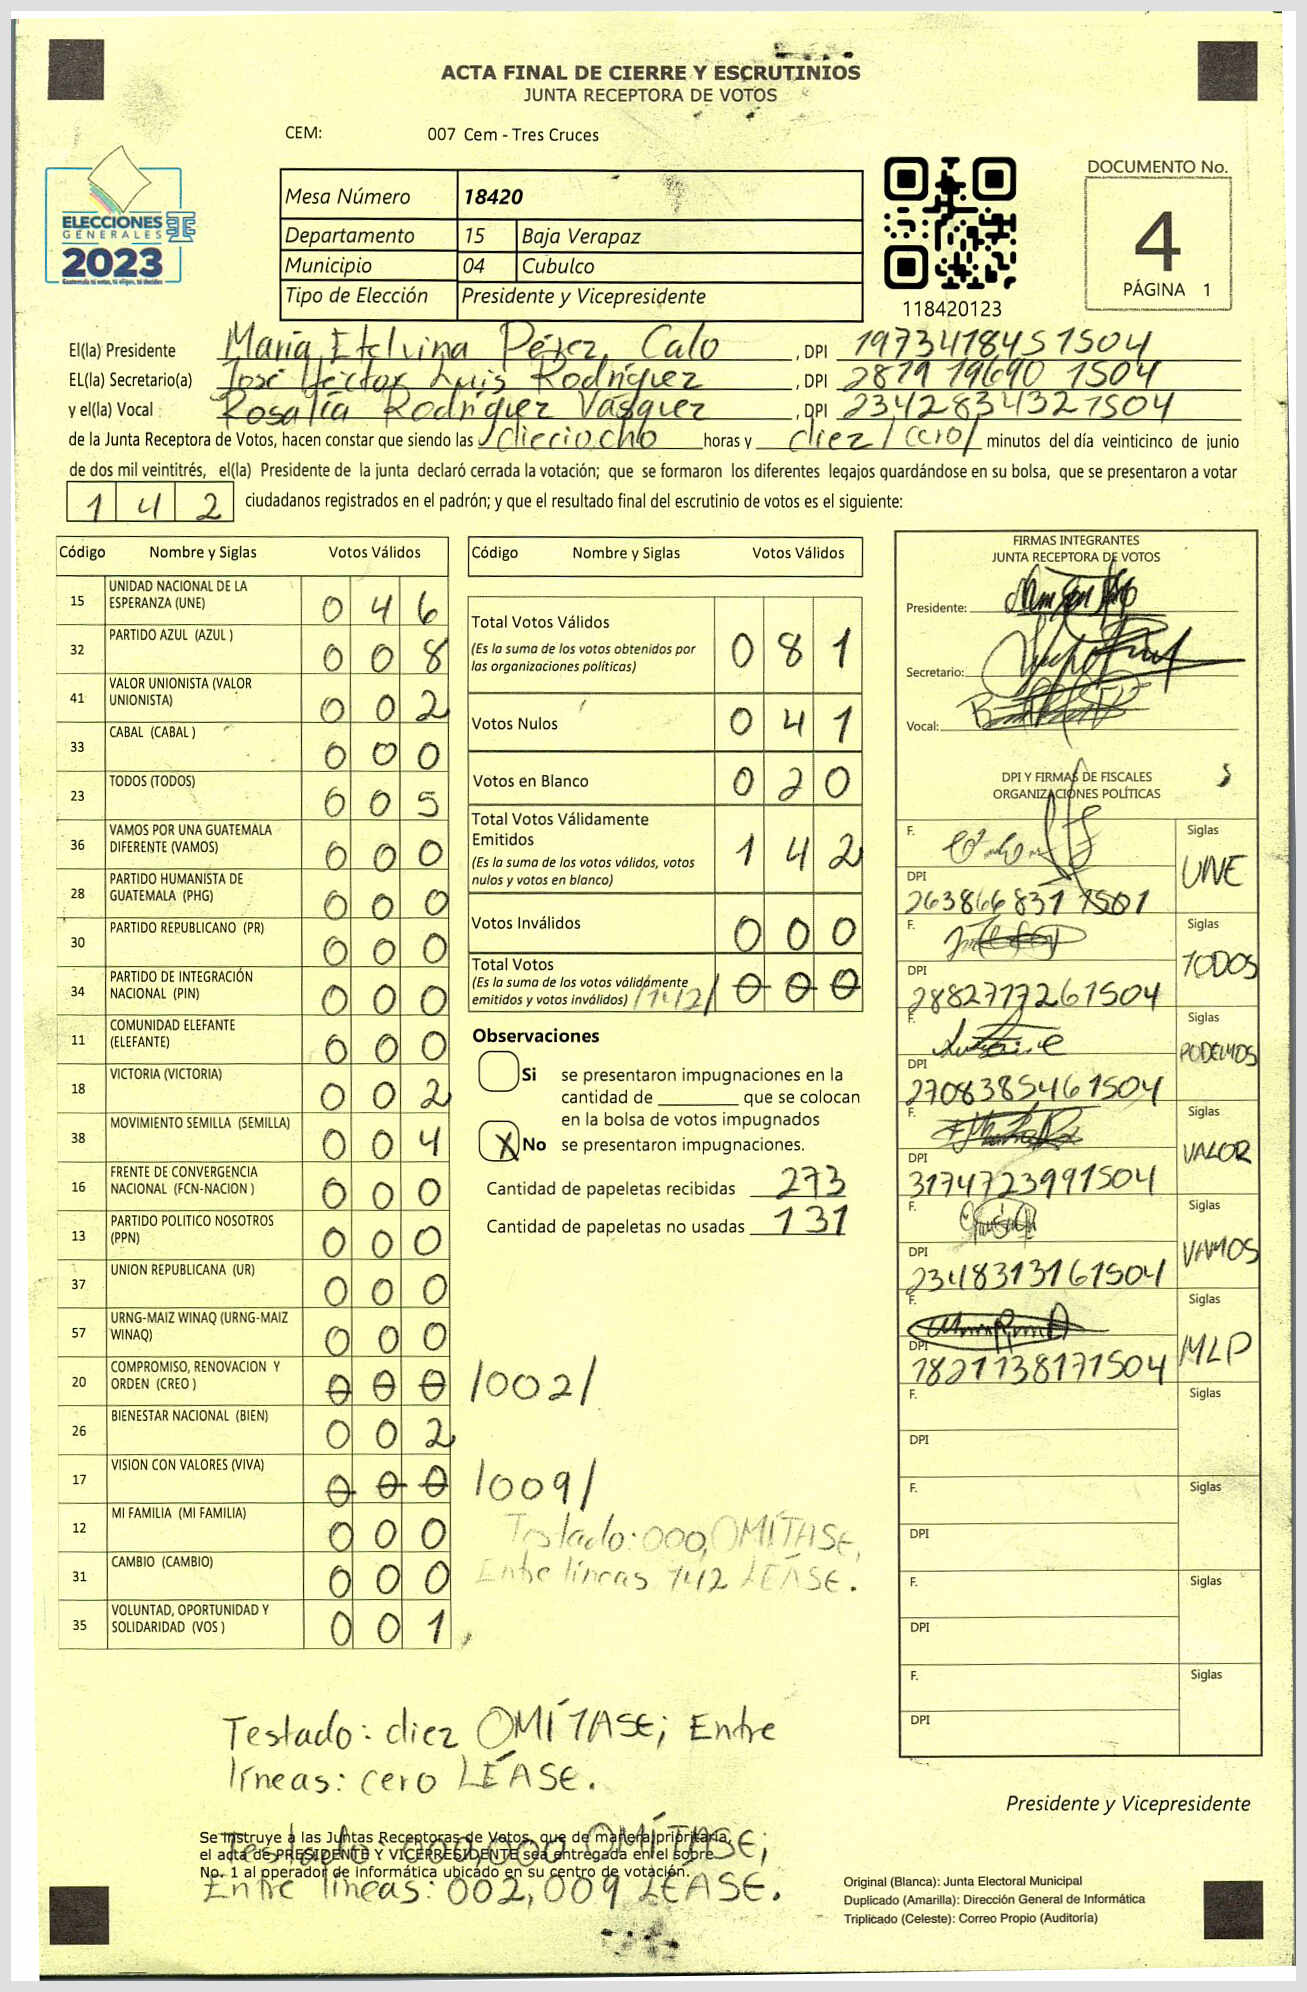 ACTA FINAL DE CIERRE Y ESCRUTINIOS
JUNTA RECEPTORA DE VOTOS
CEM: 007 Cem - Tres Cruces
ELECCIONES
GENERALES
2023
Guatemala tú votas, tú eliges, tú decides
Mesa Número 18420
Departamento 15 Baja Verapaz
Municipio 04 Cubulco
Tipo de Elección Presidente y Vicepresidente
118420123
DOCUMENTO No.
4
PÁGINA 1
El(la) Presidente María Etelvina Pérez Calo, DPI 1973418451504
EL(la) Secretario(a) José Héctor Luis Rodríguez, DPI 2819196901504
y el(la) Vocal Rosalía Rodríguez Vásquez, DPI 2342834321504
de la Junta Receptora de Votos, hacen constar que siendo las dieciocho horas y diez /cero/ minutos del día veinticinco de junio
de dos mil veintitrés, el(la) Presidente de la junta declaró cerrada la votación; que se formaron los diferentes legajos guardándose en su bolsa, que se presentaron a votar
142 ciudadanos registrados en el padrón; y que el resultado final del escrutinio de votos es el siguiente:
Código Nombre y Siglas Votos Válidos
15 UNIDAD NACIONAL DE LA ESPERANZA (UNE) 046
32 PARTIDO AZUL (AZUL ) 008
41 VALOR UNIONISTA (VALOR UNIONISTA) 002
33 CABAL (CABAL ) 000
23 TODOS (TODOS) 005
36 VAMOS POR UNA GUATEMALA DIFERENTE (VAMOS) 000
28 PARTIDO HUMANISTA DE GUATEMALA (PHG) 000
30 PARTIDO REPUBLICANO (PR) 000
34 PARTIDO DE INTEGRACIÓN NACIONAL (PIN) 000
11 COMUNIDAD ELEFANTE (ELEFANTE) 000
18 VICTORIA (VICTORIA) 002
38 MOVIMIENTO SEMILLA (SEMILLA) 004
16 FRENTE DE CONVERGENCIA NACIONAL (FCN-NACION ) 000
13 PARTIDO POLITICO NOSOTROS (PPN) 000
37 UNION REPUBLICANA (UR) 000
57 URNG-MAIZ WINAQ (URNG-MAIZ WINAQ) 000
20 COMPROMISO, RENOVACION Y ORDEN (CREO ) 000 /002/
26 BIENESTAR NACIONAL (BIEN) 002
17 VISION CON VALORES (VIVA) 000 /009/
12 MI FAMILIA (MI FAMILIA) 000
31 CAMBIO (CAMBIO) 000
35 VOLUNTAD, OPORTUNIDAD Y SOLIDARIDAD (VOS ) 001
Código Nombre y Siglas Votos Válidos
Total Votos Válidos 081
(Es la suma de los votos obtenidos por
las organizaciones políticas)
Votos Nulos 041
Votos en Blanco 020
Total Votos Válidamente
Emitidos 142
(Es la suma de los votos válidos, votos
nulos y votos en blanco)
Votos Inválidos 000
Total Votos
(Es la suma de los votos válidamente
emitidos y votos inválidos) /142/ 000
Observaciones
Si se presentaron impugnaciones en la
cantidad de ________ que se colocan
en la bolsa de votos impugnados
X No se presentaron impugnaciones.
Cantidad de papeletas recibidas 273
Cantidad de papeletas no usadas 131
Testado: 000, OMÍTASE,
Entre líneas 142 LEASE.
FIRMAS INTEGRANTES
JUNTA RECEPTORA DE VOTOS
Presidente:
Secretario:
Vocal:
DPI Y FIRMAS DE FISCALES
ORGANIZACIONES POLÍTICAS
F. Siglas UNE
DPI 2638668371501
F. Siglas TODOS
DPI 2882717261504
F. Siglas PODEMOS
DPI 2708385461504
F. Siglas VALOR
DPI 3174723991504
F. Siglas VAMOS
DPI 2348313161504
F. Siglas MLP
DPI 1821138171504
F. Siglas
DPI
F. Siglas
DPI
F. Siglas
DPI
F. Siglas
DPI
Testado: diez OMÍTASE; Entre
líneas: cero LÉASE.
Presidente y Vicepresidente
Se instruye a las Juntas Receptoras de Votos, que de manera prioritaria,
el acta de PRESIDENTE Y VICEPRESIDENTE sea entregada en el sobre
No. 1 al operador de informática ubicado en su centro de votación.
Testado: 000,000 OMÍTASE;
Entre líneas: 002,009 LÉASE.
Original (Blanca): Junta Electoral Municipal
Duplicado (Amarilla): Dirección General de Informática
Triplicado (Celeste): Correo Propio (Auditoría)